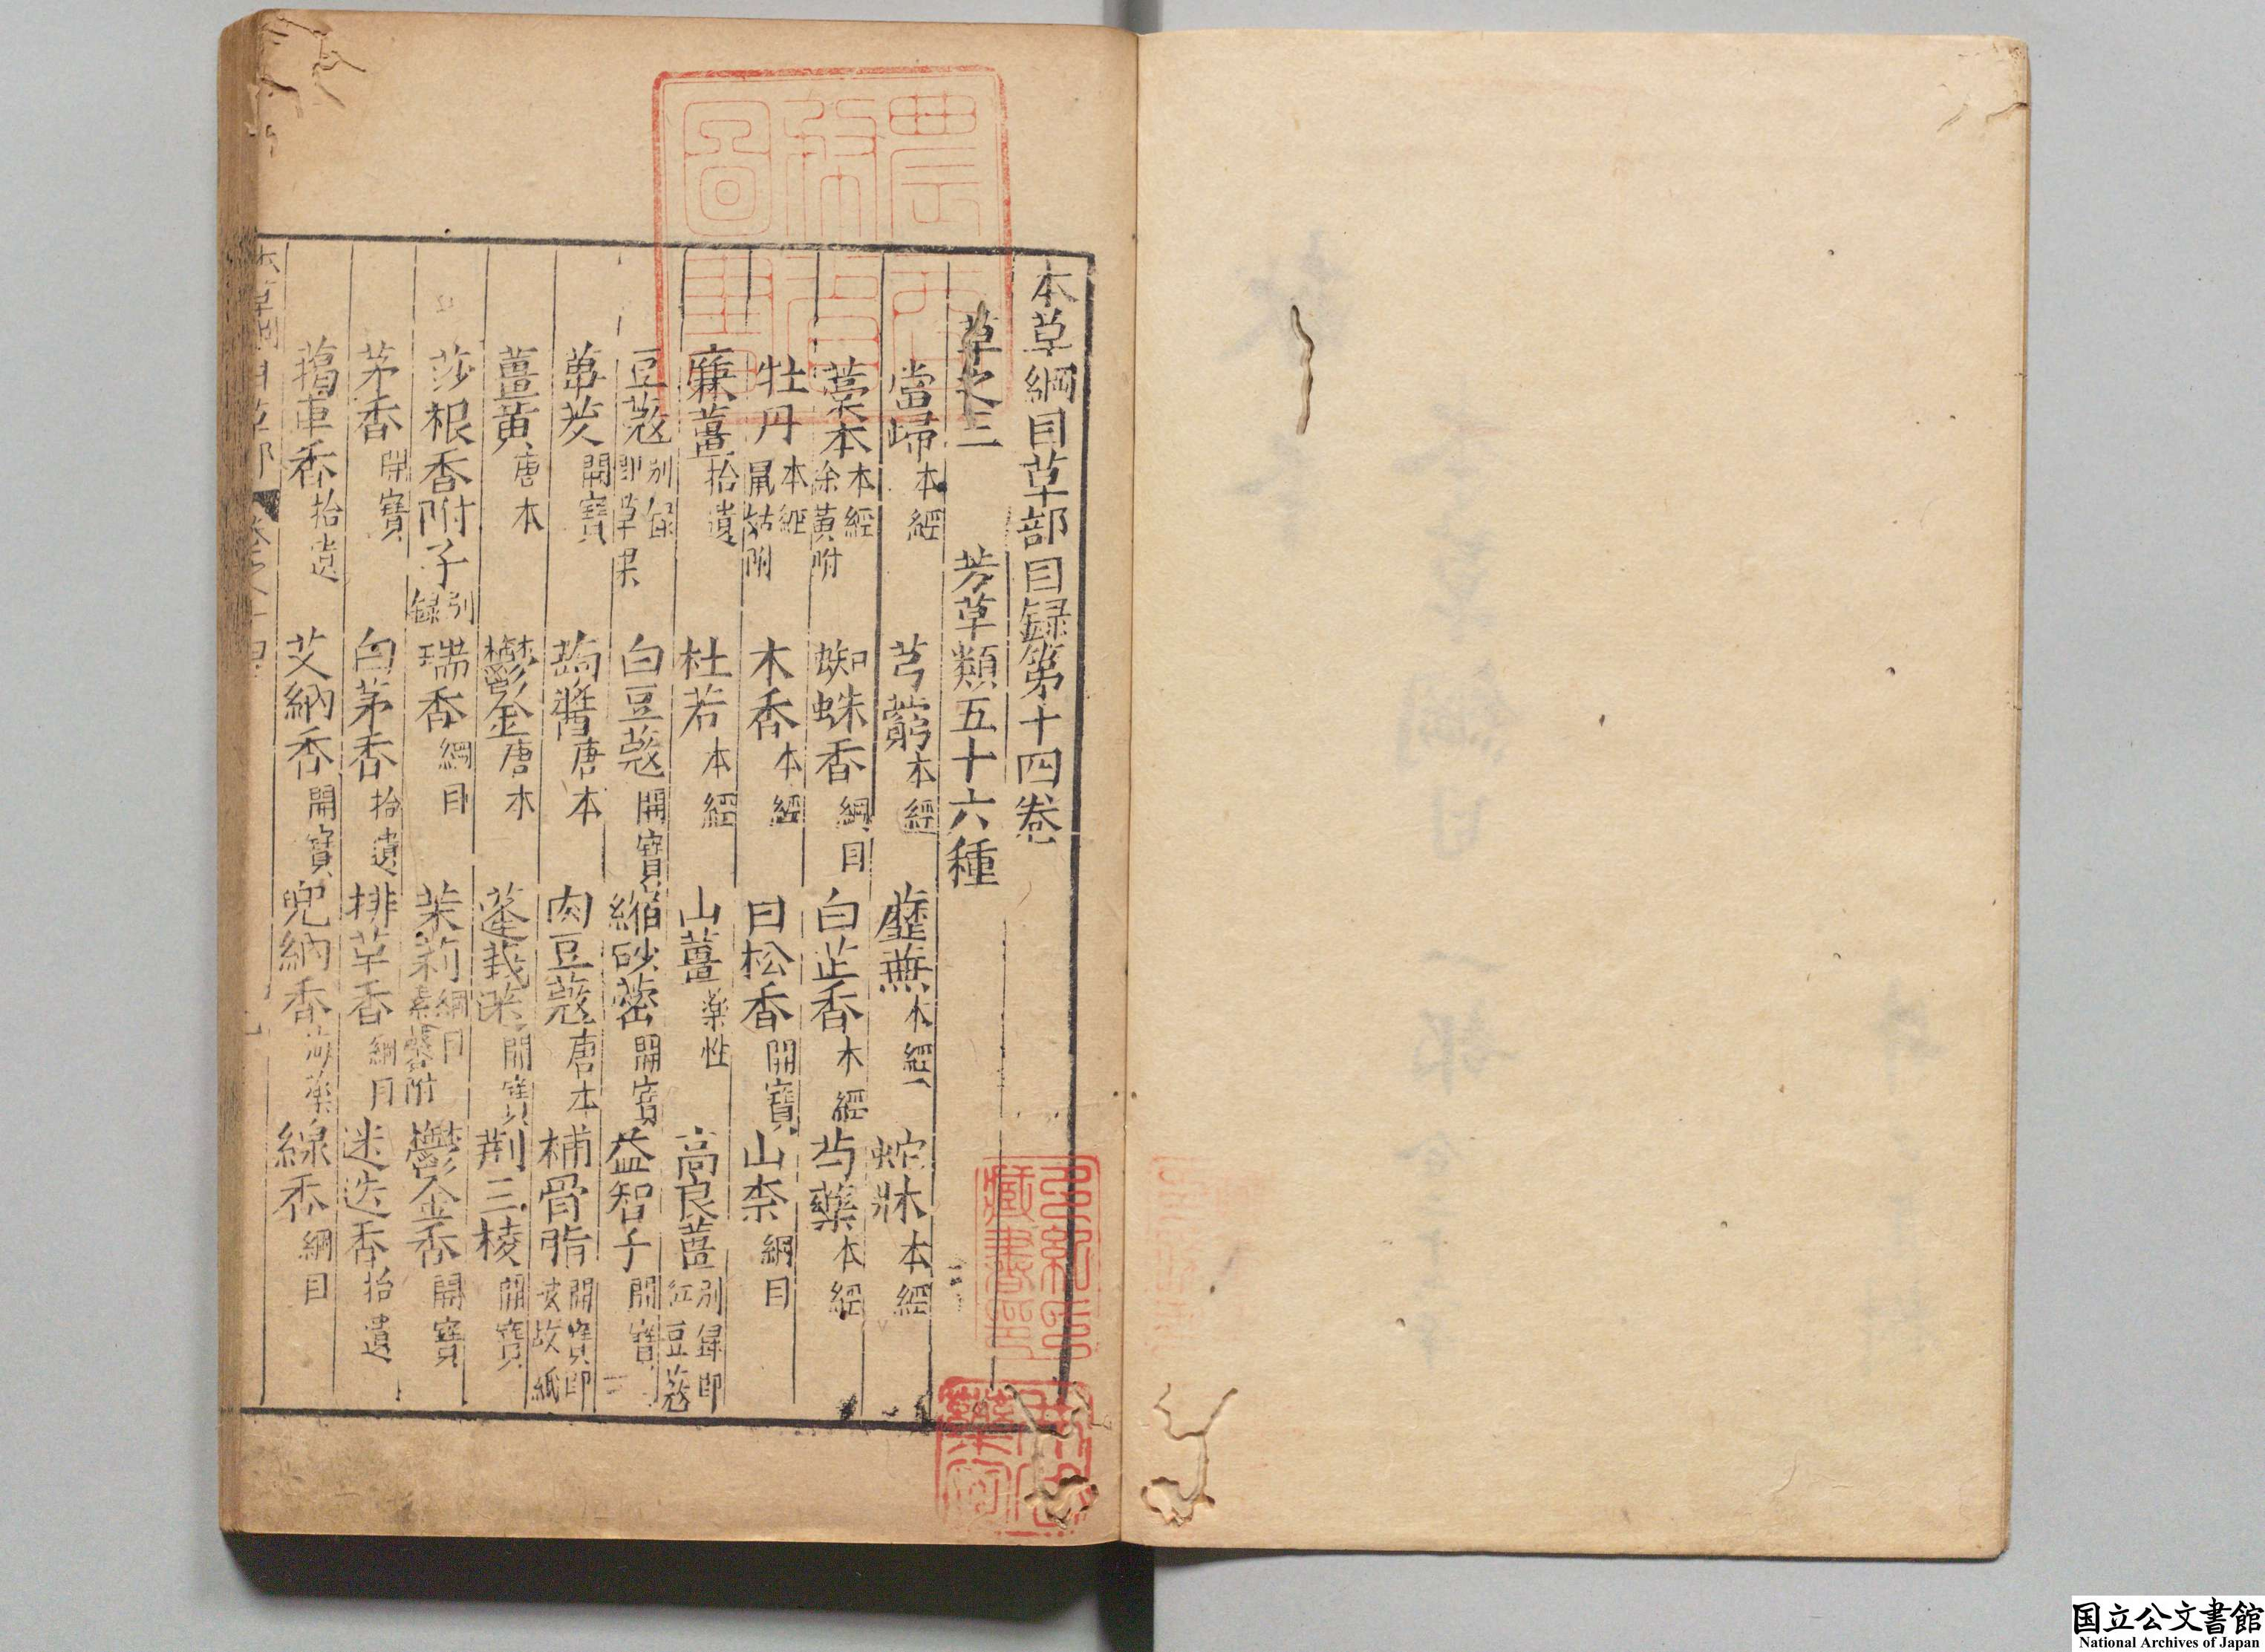 本草綱目草部目録第十四卷
草之三　芳草類五十六種
當歸 本經　芎藭 本經　蘼蕪 本經　蛇牀 本經
藁本 本經 徐黃附　蜘蛛香 綱目　白芷香 本經　芍藥 本經
牡丹 本經 鼠姑附　木香 本經　甘松香 開寶　山柰 綱目
廉薑 拾遺　杜若 本經　山薑 藥性　高良薑 別録即紅豆蔻
豆蔻 別録即草果　白豆蔻 開寶　縮砂蔤 開寶　益智子 開寶
蓽茇 開寶　蒟醬 唐本　肉豆蔻 唐本　補骨脂 開寶即破故紙
薑黃 唐本　鬱金 唐本　蓬莪茂 開寶　荆三棱 開寶
莎根香附子 別録　瑞香 綱目　茉莉 綱目 素馨附　鬱金香 開寶
茅香 開寶　白茅香 拾遺　排草香 綱目　迷迭香 拾遺
藒車香 拾遺　艾納香 開寶　兜納香 海藥　線香 綱目
国立公文書館
National Archives of Japan